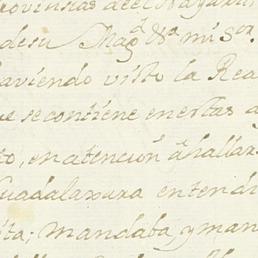 rovincias de el Nayari
de su Magd. Va. mi Sor.
haviendo visto la Rea
ue se contiene en estas a
to, en atencion â hallars
Guadalaxura entendi
ita; mandaba y man